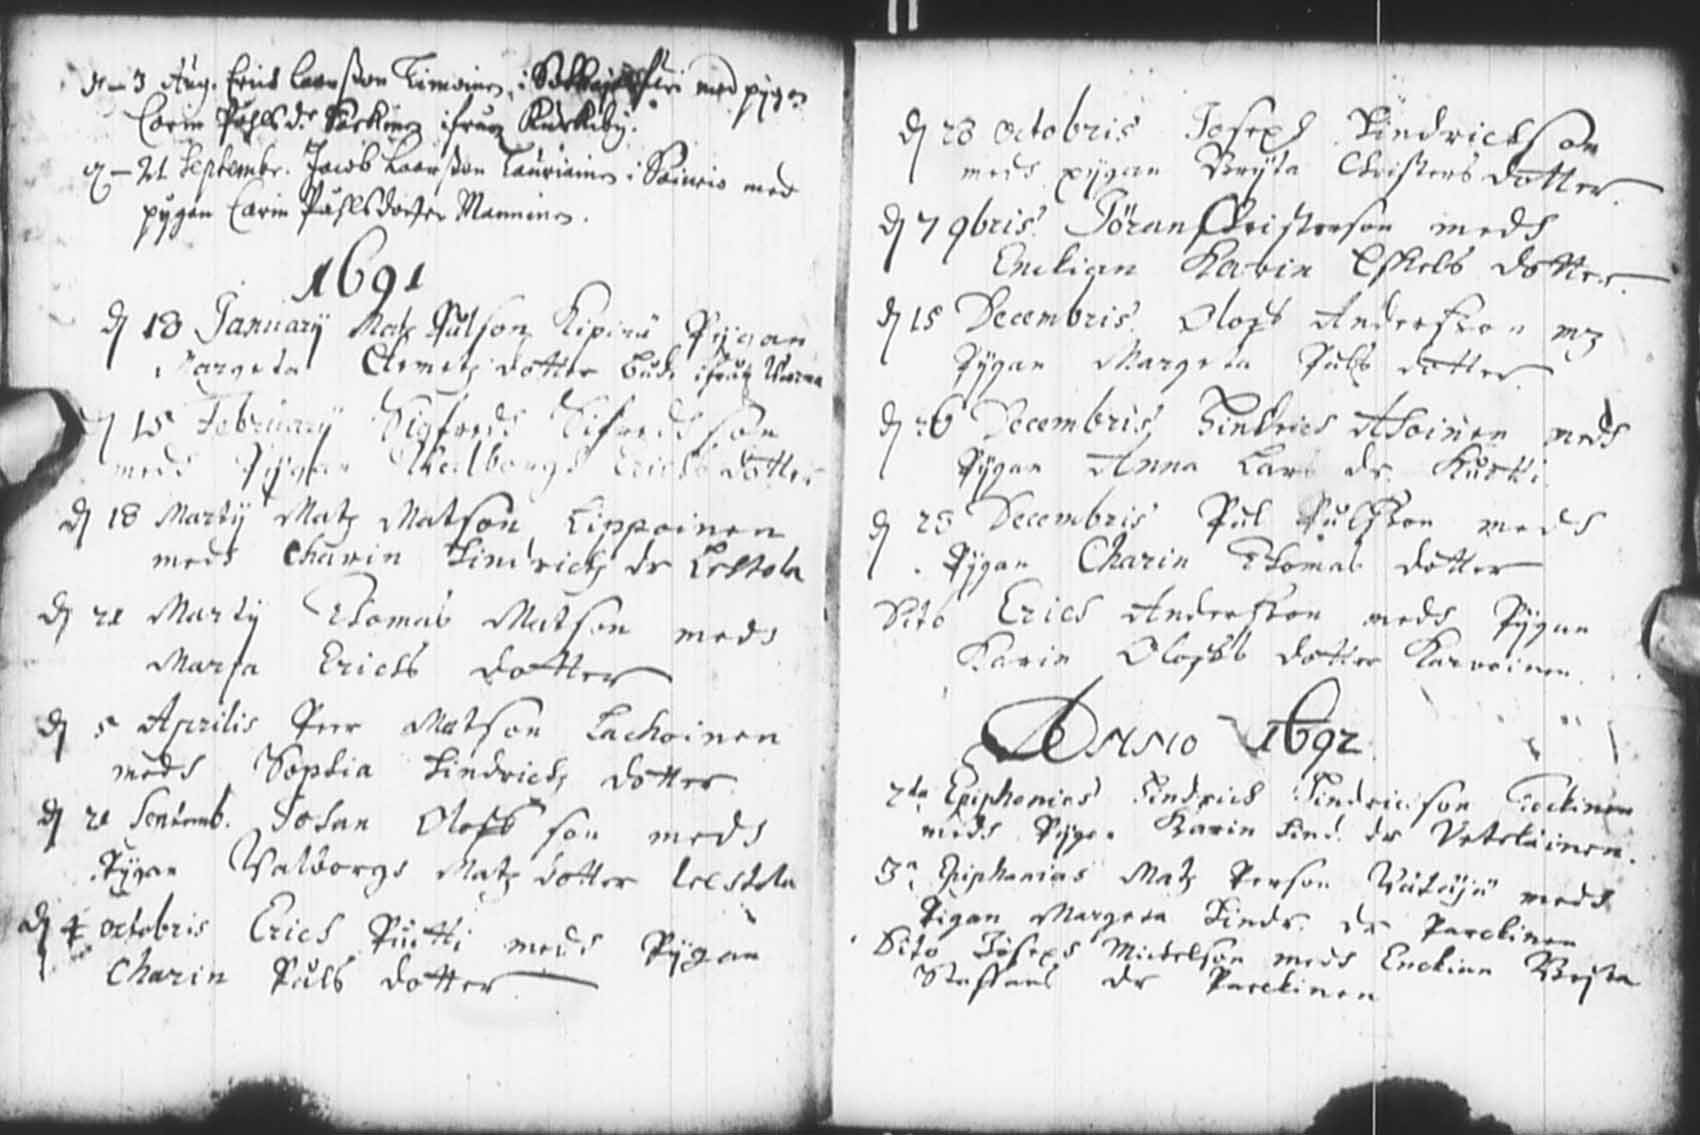 d. 3 Aug. Erich Larsson Timoinen, i med pygan
Carin Påhlsdr ifrån Kurkiby.
d. 21 Septembr. Jacob Larsson Lauriainen i Sairio med
pygan Carin Påhlsdotter Manninen.
1691
dj 18 January Matz Pulson Kipinä Pygan
Margeta Clemetz dotter ifrån
dj 15 February Sigfreds Sifredsson
meds Pygan Wallborgs Erichs dotter
dj 18 Martij Matz Matson Lippoinen
meds Charin Hindrichz dr Leskela
dj 21 Martij Thomas Matson meds
Maria Erichs dotter
dj 5 Aprilis Peer Matson Lachoinen
meds Sophia Hindrichz dotter
dj 20 Septemb. Johan Olofs son meds
Pygan Valborgs Matz dotter Leskela
dj 4 octobris Erich Putti meds Pygan
Charin Puls dotter
dj 28 octobris Joseph Hindrichson
meds pygan Bryta Christers dotter.
dj 7 9bris Jöran Christerson meds
Enckian Karin Eskels dotter.
dj 15 Decembris Olofs Andersson mz
Pygan Margeta Puls dotter
dj 26 Decembris Hindrich Asoinen meds
Pygan Anna Lars dr Kurki
dj 28 Decembris Pul Pulsson meds
Pygan Charin Thomas dotter
Dito Erich Andersson meds Pygan
Karin Olofs dotter Karvoinen.
Anno 1692
2da Epiphanias Hindrich Hindricson
meds Pyga Karin Hind. dr Vetelainen.
3a Epiphanias Matz Person meds
Pigan Margeta Hindr. dr Parckinen
Dito Joseph Michelson meds Enckian Brita
Staffans dr Parckinen